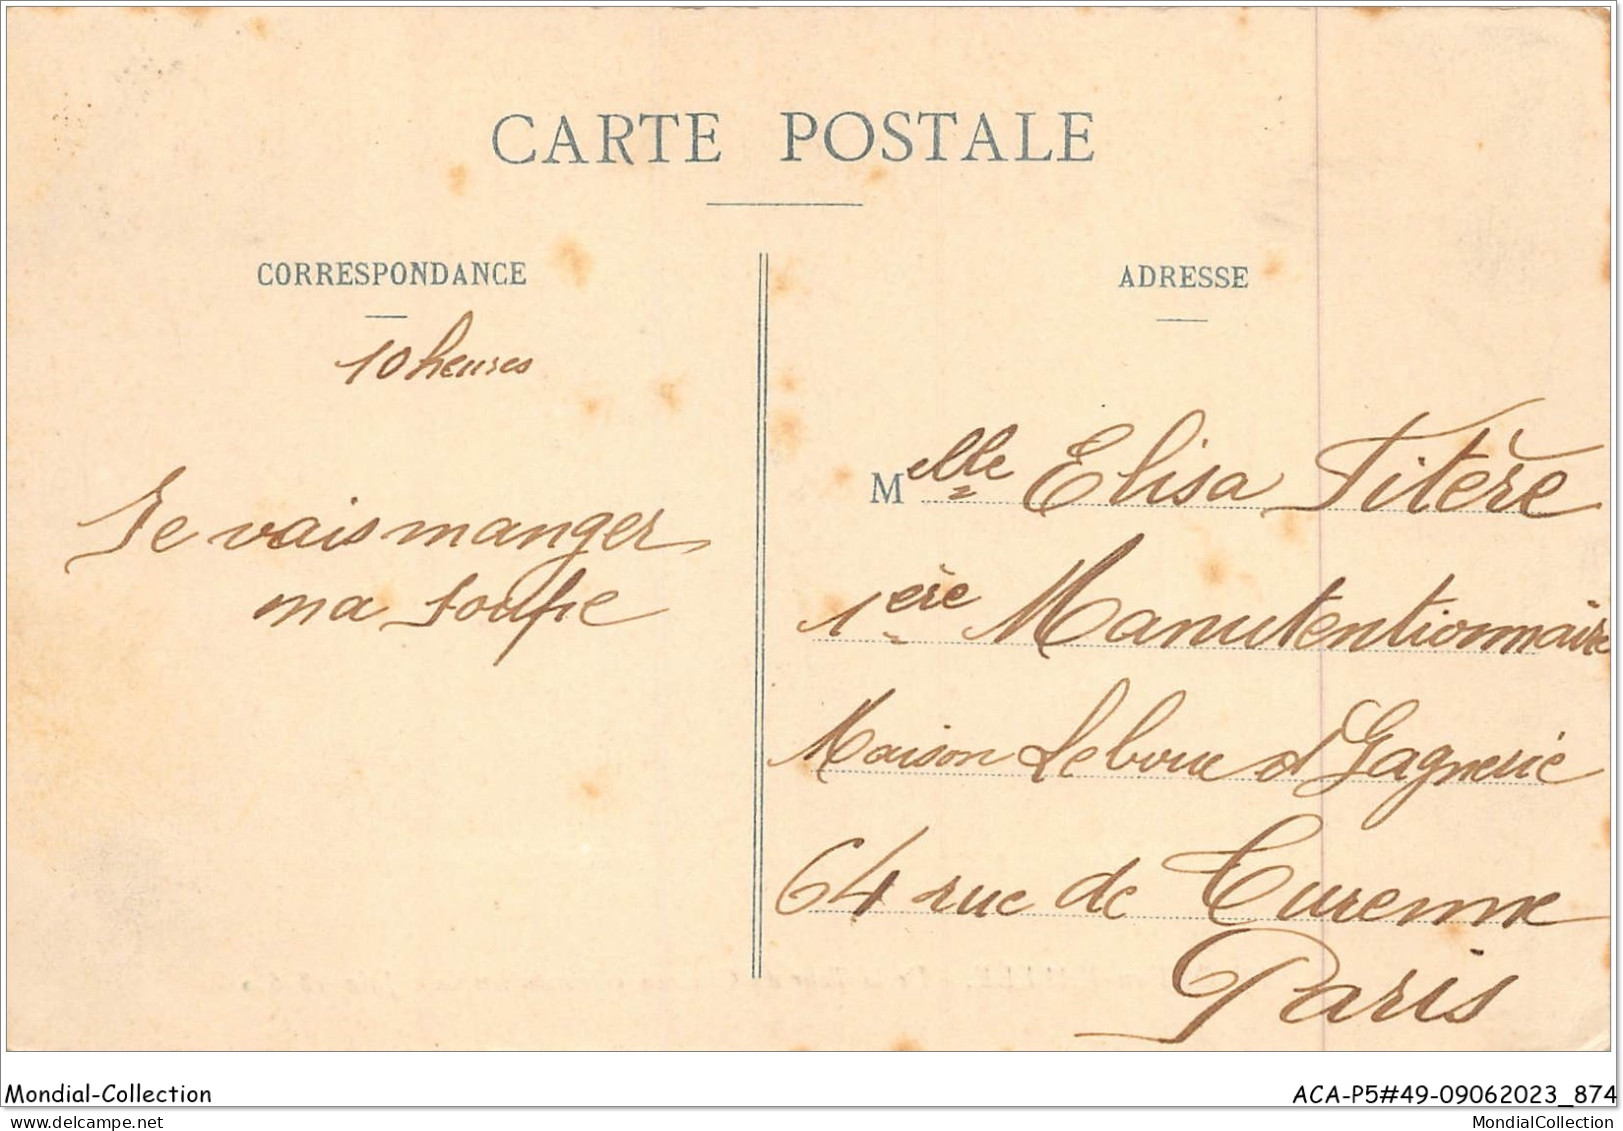 CARTE POSTALE
CORRESPONDANCE
10 heures
Je vais manger
ma soupe
ADRESSE
Melle Elisa Titère
1ère Manutentionnaire
Maison Leboue et Gagnerie
64 rue de Turenne
Paris
Mondial-Collection
ACA-P5#49-09062023_874
www.delcampe.net
MondialCollection